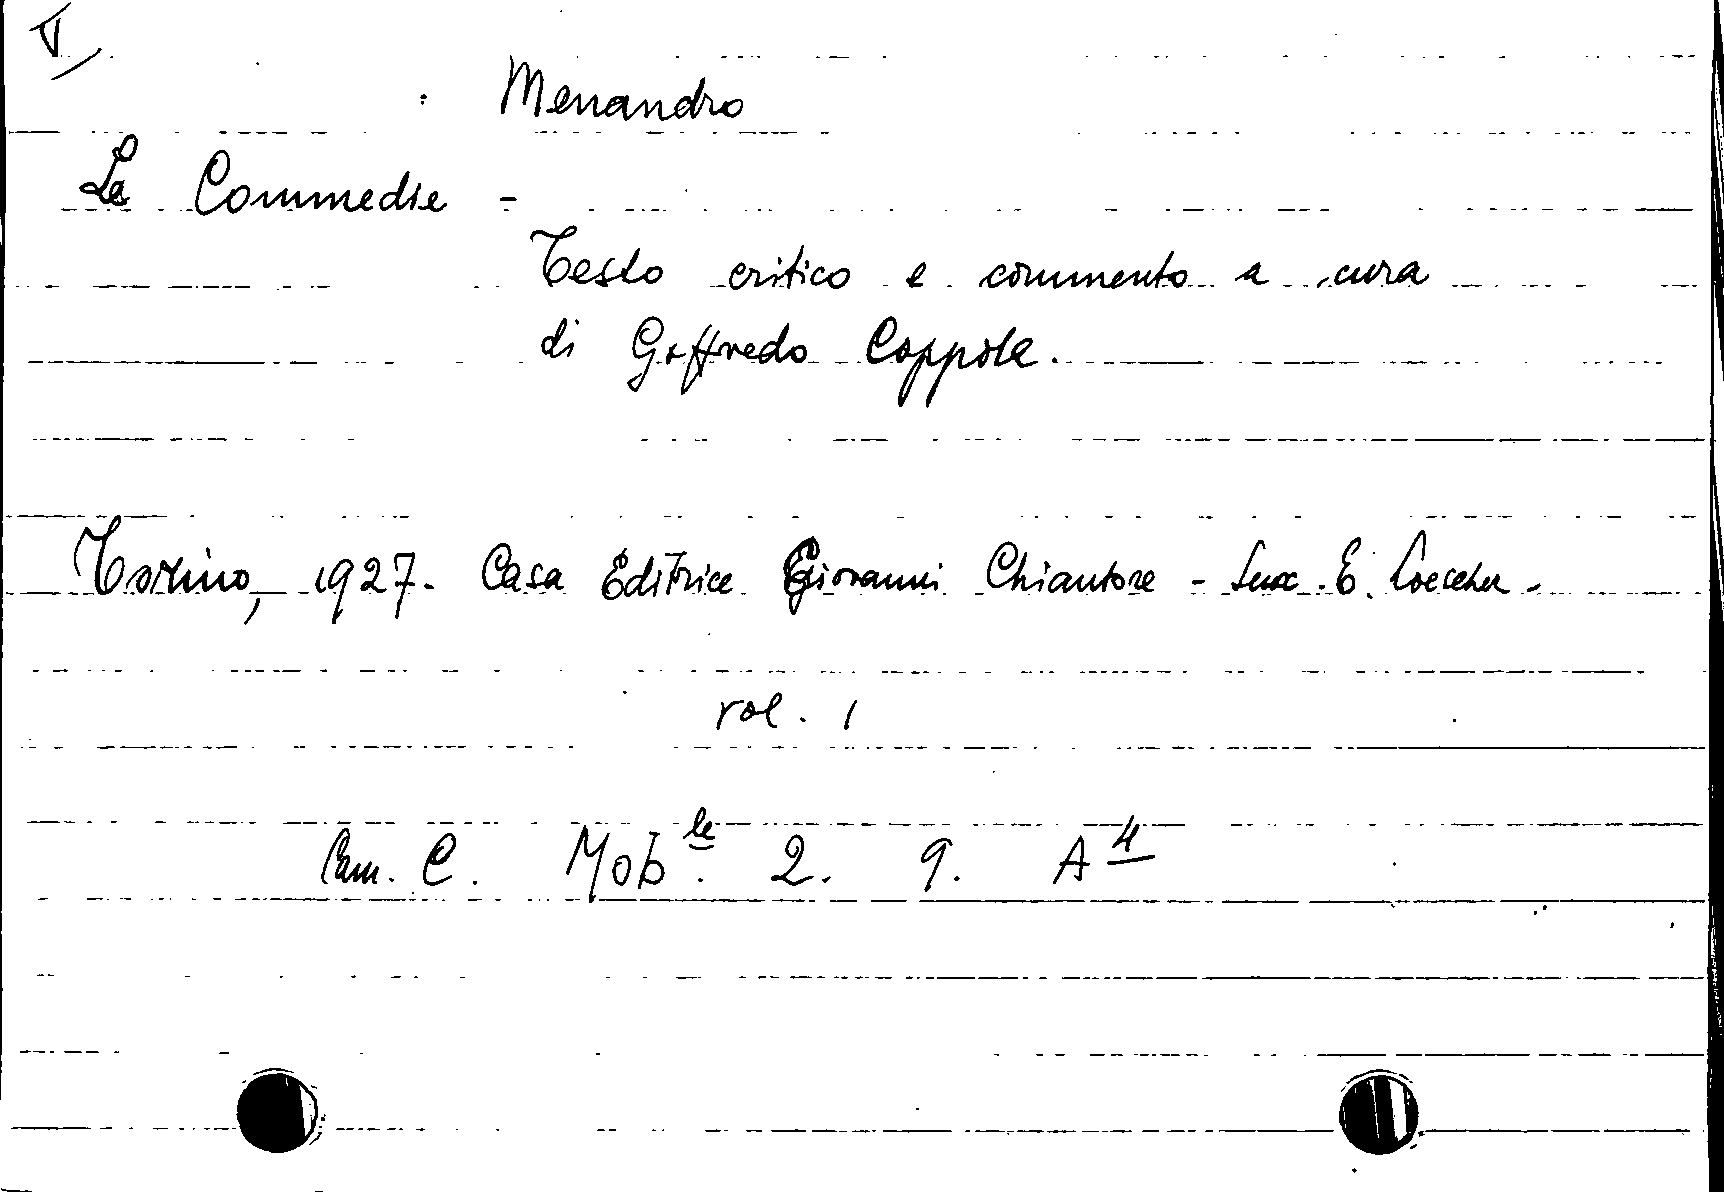 V
Menandro
Le Commedie -
Testo critico e commento a cura
di Goffredo Coppola.
Torino, 1927. Casa Editrice Giovanni Chiantore - Succ. E. Loescher -
vol. 1
Cam. C. Mob.le 2. 9. A 4